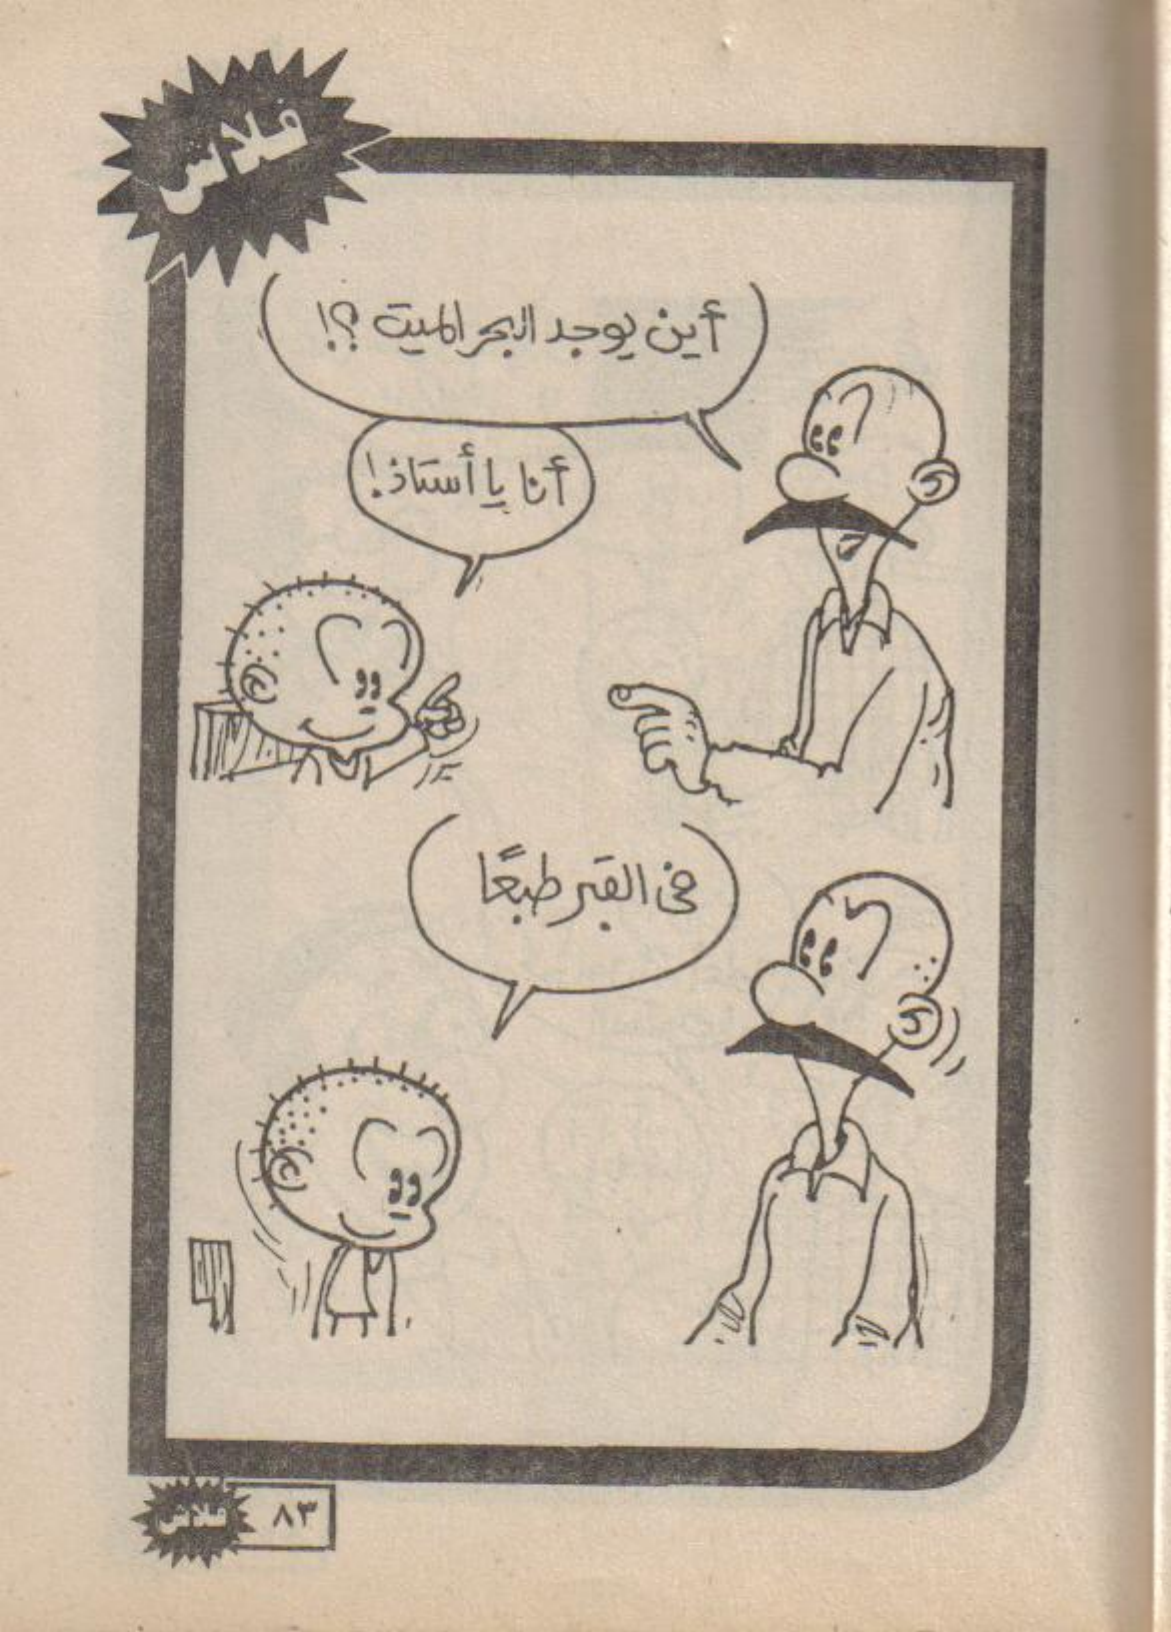 فلاش
أين يوجد البحر الميت ؟!
أنا يا أستاذ!
فى القبر طبعًا
فلاش ٨٣